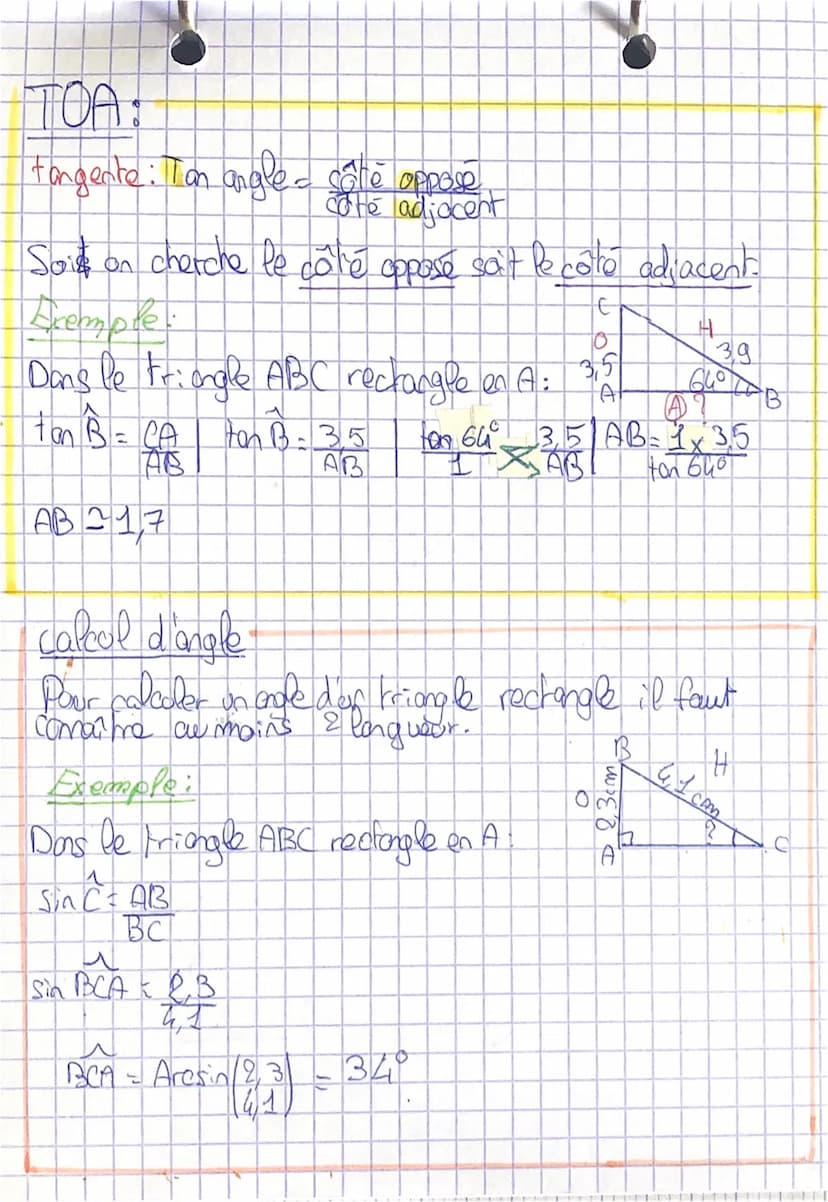 TOA:
tangente: Tan angle = côté opposé
côté adjacent
Soit on cherche le côté opposé soit le côté adjacent.
Exemple:
C
O
H
3,5
3,9
64°
A
B
A ?
Dans le triangle ABC rectangle en A:
tan B̂ = CA/AB | tan B̂ = 3,5/AB | tan 64°/1 = 3,5/AB | AB = 1 x 3,5/tan 64°
AB ≃ 1,7
calcul d'angle
Pour calculer un angle d'un triangle rectangle il faut
connaître au moins 2 longueur.
Exemple:
B
H
O
2,3cm
4,1 cm
?
A
C
Dans le triangle ABC rectangle en A:
sin Ĉ = AB/BC
sin BCA = 2,3/4,1
BCA = Arcsin(2,3/4,1) = 34°